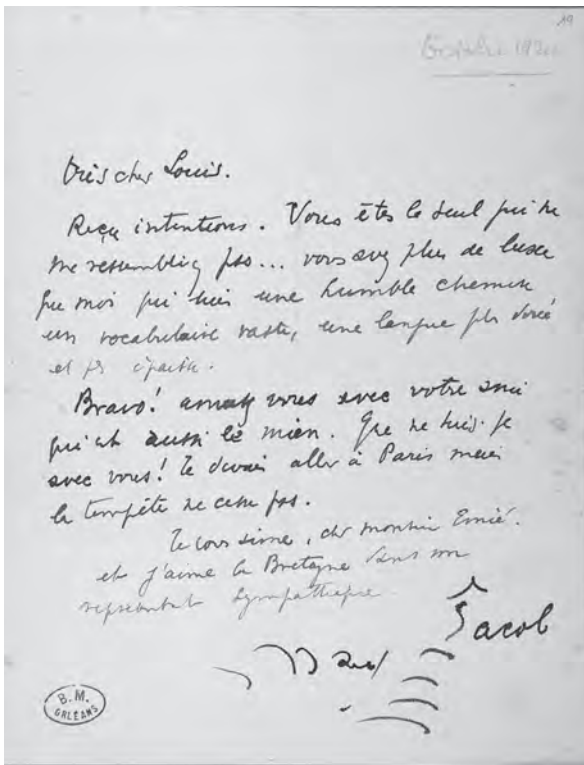 19
Octobre 192
très cher Louis.
Reçu intentions. Vous êtes le seul qui ne
me ressembliez pas... vous avez plus de luxe
que moi qui suis une humble chemise
un vocabulaire vaste, une langue pls dorée
et ps épaisse.
Bravo! amusez vous avec votre ami
qui est aussi le mien. Que ne suis-je
avec vous! Je devais aller à Paris mais
la tempête ne cesse pas.
Je vous aime, chr monsieur Emié.
et j'aime la Bretagne dans son
représentant sympathique.
Max Jacob
B. M.
ORLÉANS